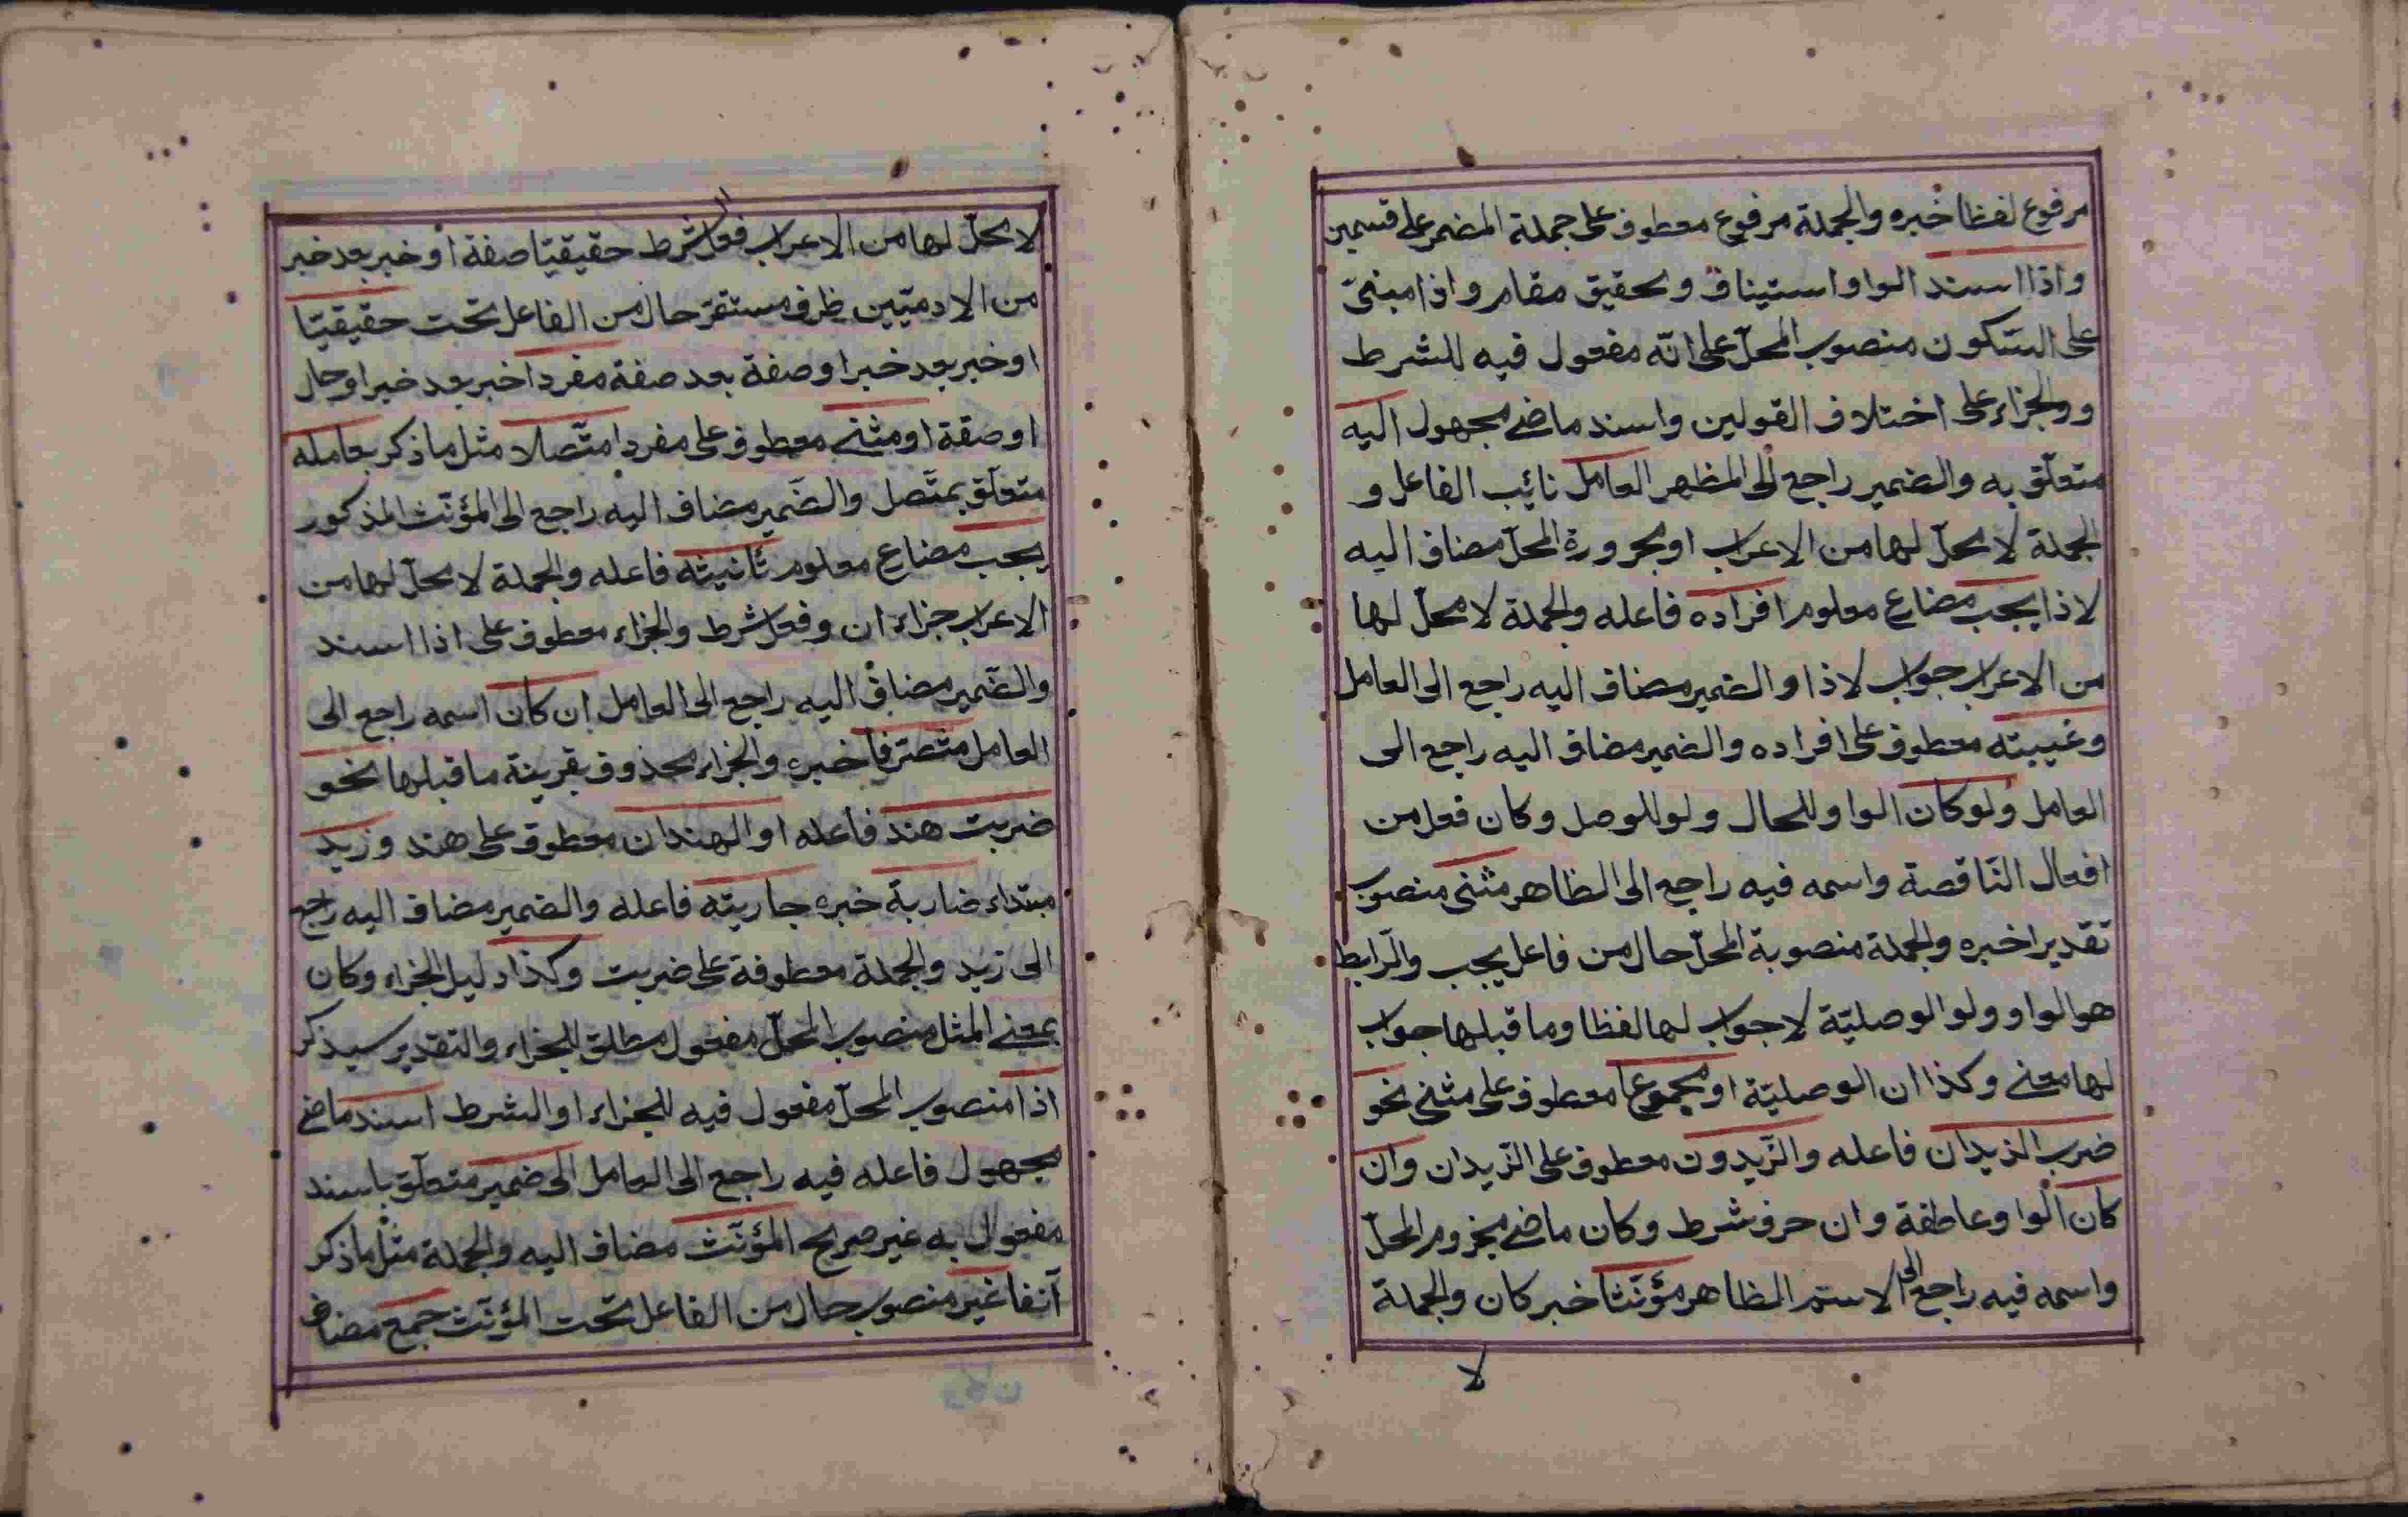 مرفوع لفظا خبره والجملة مرفوع معطوف على جملة المضمر على قسمين
واذا اسند الواو استيناف وتحقيق مقامر واذا مبنىّ
على السّكون منصوب المحلّ على انّه مفعول فيه للشرط
وولجزاء على اختلاف القولين واسند ماضى مجهول اليه
متعلّق به والضمير راجع الى المظهر العامل نائب الفاعل و
الجملة لا محلّ لها من الاعراب او مجرورة المحلّ مضاف اليه
لاذا يجب مضاع معلوم افراده فاعله والجملة لا محلّ لها
من الاعراب جواب لاذا والضمير مضاف اليه راجع الى العامل
وغيبيته معطوف على افراده والضمير مضاف اليه راجع الى
العامل ولو كان الواو للحال ولو للوصل وكان فعل من
افعال النّاقصة واسمه فيه راجع الى الظاهر مثنى منصوب
تقديرا خبره والجملة منصوبة المحلّ حال من فاعل يجب والرّابط
هو الواو ولو الوصليّة لا جواب لها لفظا وما قبلها جواب
لها معنى وكذا ان الوصليّة او مجموعا معطوف على مثنى نحو
ضرب الزيدان فاعله والزّيدون معطوف على الزّيدان وان
كان الواو عاطفة وان حرف شرط وكان ماضى مجزوم المحلّ
واسمه فيه راجع الى الاسم الظاهر مؤنّثا خبر كان والجملة
لا
لا محلّ لها من الاعراب فعل الشرط حقيقيّا صفة او خبر بعد خبر
من الادميّين ظرف مستقرّ حال من الفاعل تحت حقيقيّا
او خبر بعد خبر او صفة بعد صفة مفردا خبر بعد خبر او حال
او صفة او مثنى معطوف على مفردا متّصلا مثل ما ذكر بعامله
متعلّق بمتّصل والضّمير مضاف اليه راجع الى المؤنّث المذكور
يجب مضاع معلوم ثانيثه فاعله والجملة لا محلّ لها من
الاعراب جزاء ان وفعل شرط والجزاء معطوف على اذا اسند
والضّمير مضاف اليه راجع الى العامل ان كان اسمه راجع الى
العامل متصرّفا خبره والجزاء محذوف بقرينة ما قبلها نحو
ضربت هند فاعله او الهندان معطوف على هند وزيد
مبتداء ضاربة خبره جاريته فاعله والضمير مضاف اليه راجع
الى زيد والجملة معطوفة على ضربت وكذا دليل الجزاء وكان
بمعنى المثل منصوب المحلّ مفعول مطلق للجزاء والتقدير سيذكر
اذا منصوب المحلّ مفعول فيه للجزاء او الشرط اسند ماضى
مجهول فاعله فيه راجع الى العامل الى ضمير متعلّق باسند
مفعول به غير صريح المؤنّث مضاف اليه والجملة مثل ما ذكر
آنفا غير منصوب حال من الفاعل تحت المؤنّث جمع مضاف